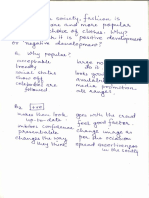 In society, fashion is
more and more popular
choice of clothes. Why?
it is positive development
or negative development?
Why popular?
acceptable
trendy
social status
show off
celebrities are
followed
looks good
media promotion
+ve
makes them look
up-to-date
instills confidence
presentable
changes the way
they think
goes with the crowd
feel good
change image as
per the occasion
spread awareness
in the society